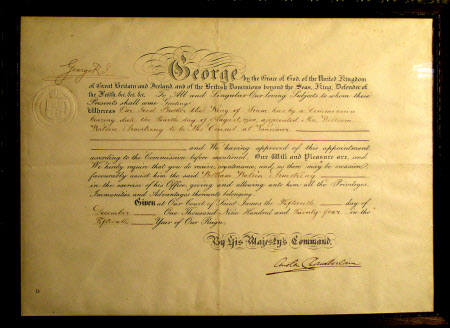 George R. I.
George by the Grace of God, of the United Kingdom
of Great Britain and Ireland and of the British Dominions beyond the Seas, King, Defender of
the Faith, &c. &c. &c. To All and Singular Our loving Subjects to whom these
Presents shall come Greeting.
Whereas Our Good Brother the King of Siam has by a Commission
bearing date the Fourth day of August, appointed Mr. William
Armstrong to be His Consul at
and We having approved of this appointment
according to the Commission before mentioned, Our Will and Pleasure are, and
We hereby require that you do receive, countenance, and, as there may be occasion,
favourably assist him the said William Armstrong
in the exercise of his Office, giving and allowing unto him all the Privileges,
Immunities and Advantages thereunto belonging.
Given at Our Court of Saint James the Fifteenth day of
December One Thousand Nine Hundred and Twenty four in the
Fifteenth Year of Our Reign.
By His Majesty's Command,
Austen Chamberlain